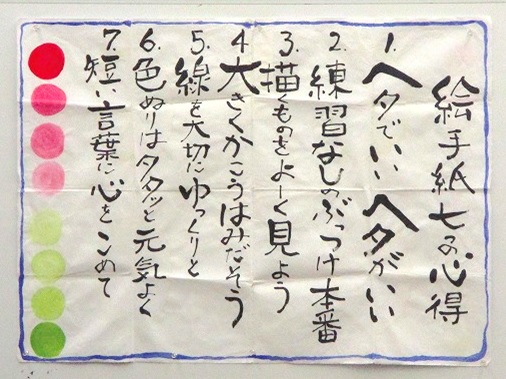 絵手紙七つの心得
1. ヘタでいいヘタがいい
2. 練習なしのぶっつけ本番
3. 描くものをよーく見よう
4. 大きくかこうはみだそう
5. 線を大切にゆっくりと
6. 色ぬりはタタッと元気よく
7. 短い言葉に心をこめて